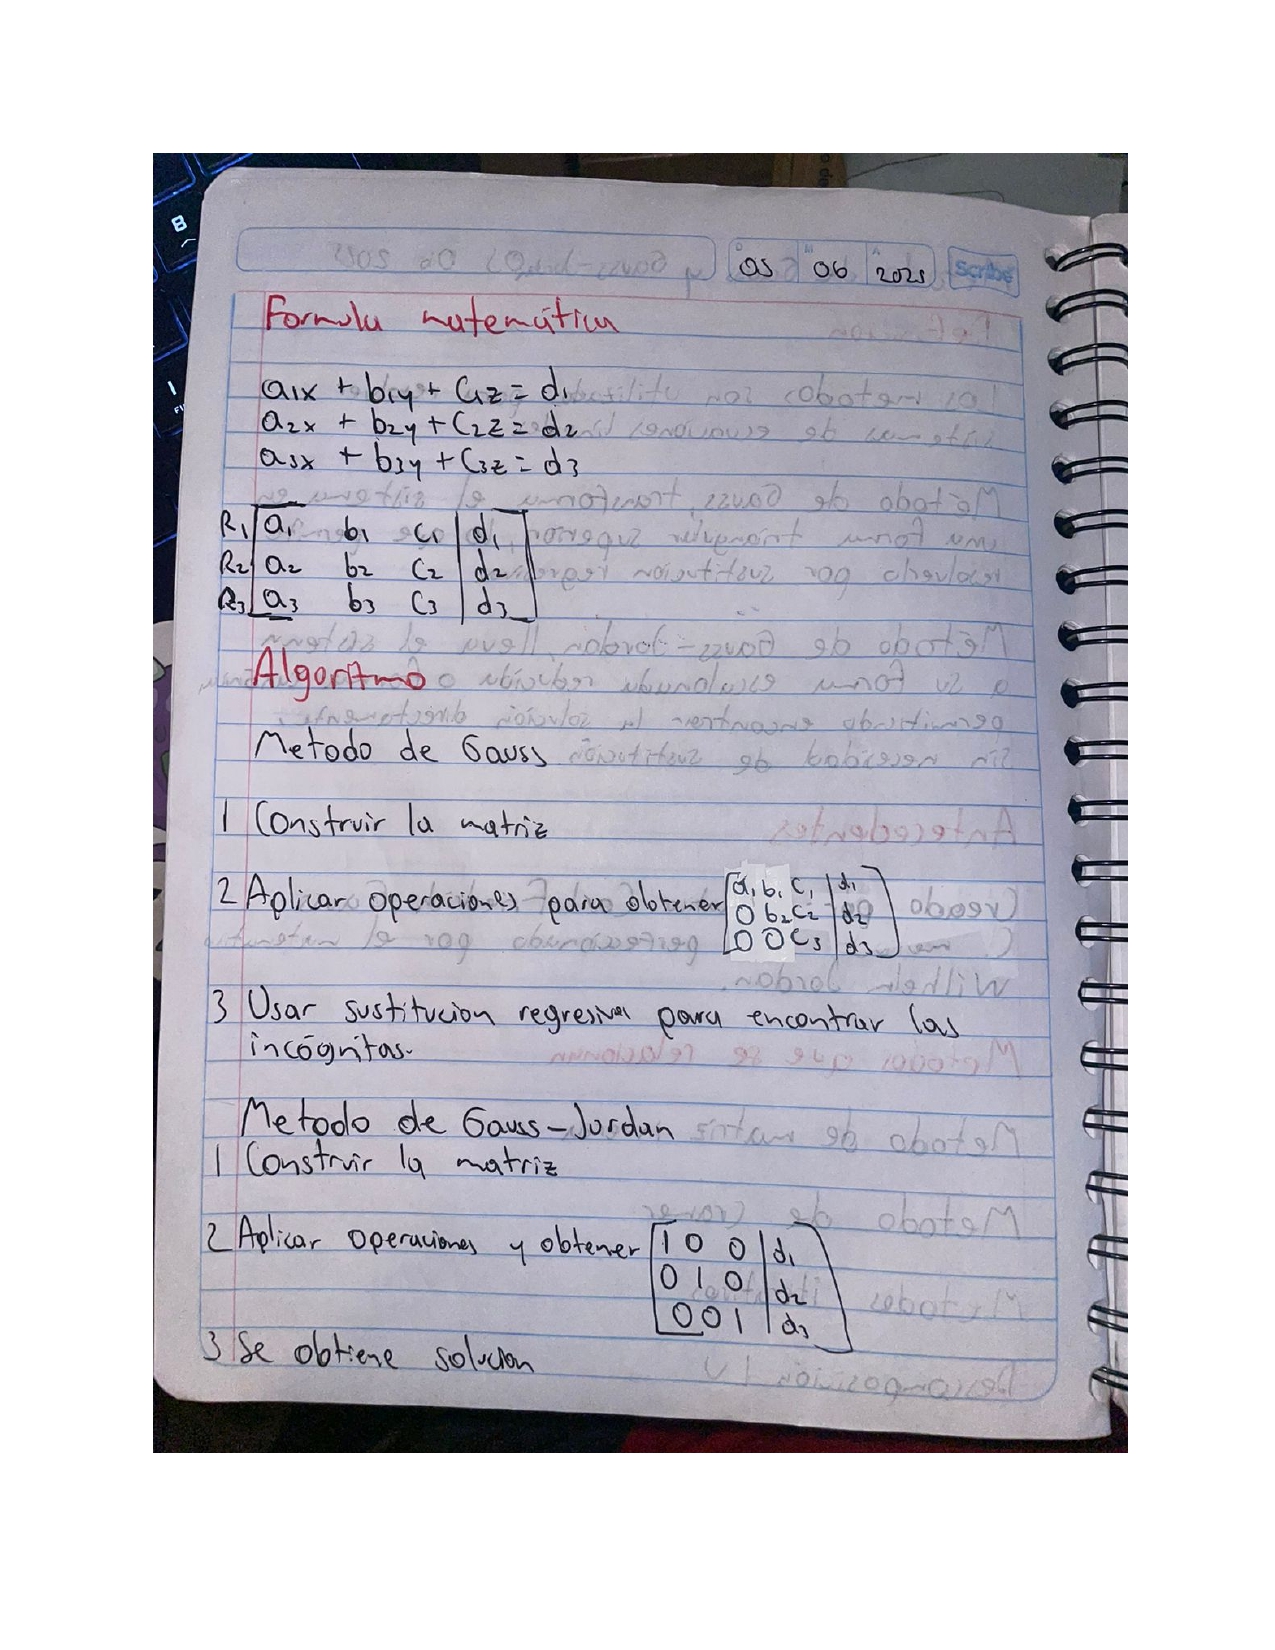 05 06 2025 Scribe
Formula matemática
a1x + b1y + C1z = d1
a2x + b2y + C2z = d2
a3x + b3y + C3z = d3
R1 a1 b1 c1 | d1
R2 a2 b2 C2 | d2
R3 a3 b3 C3 | d3
Algoritmo
Metodo de Gauss
1 Construir la matriz
2 Aplicar operaciones para obtener
a1 b1 C1 | d1
0 b2 C2 | d2
0 0 C3 | d3
3 Usar sustitucion regresiva para encontrar las
incógnitas.
Metodo de Gauss-Jordan
1 Construir la matriz
2 Aplicar operaciones y obtener
1 0 0 | d1
0 1 0 | d2
0 0 1 | d3
3 Se obtiene solucion